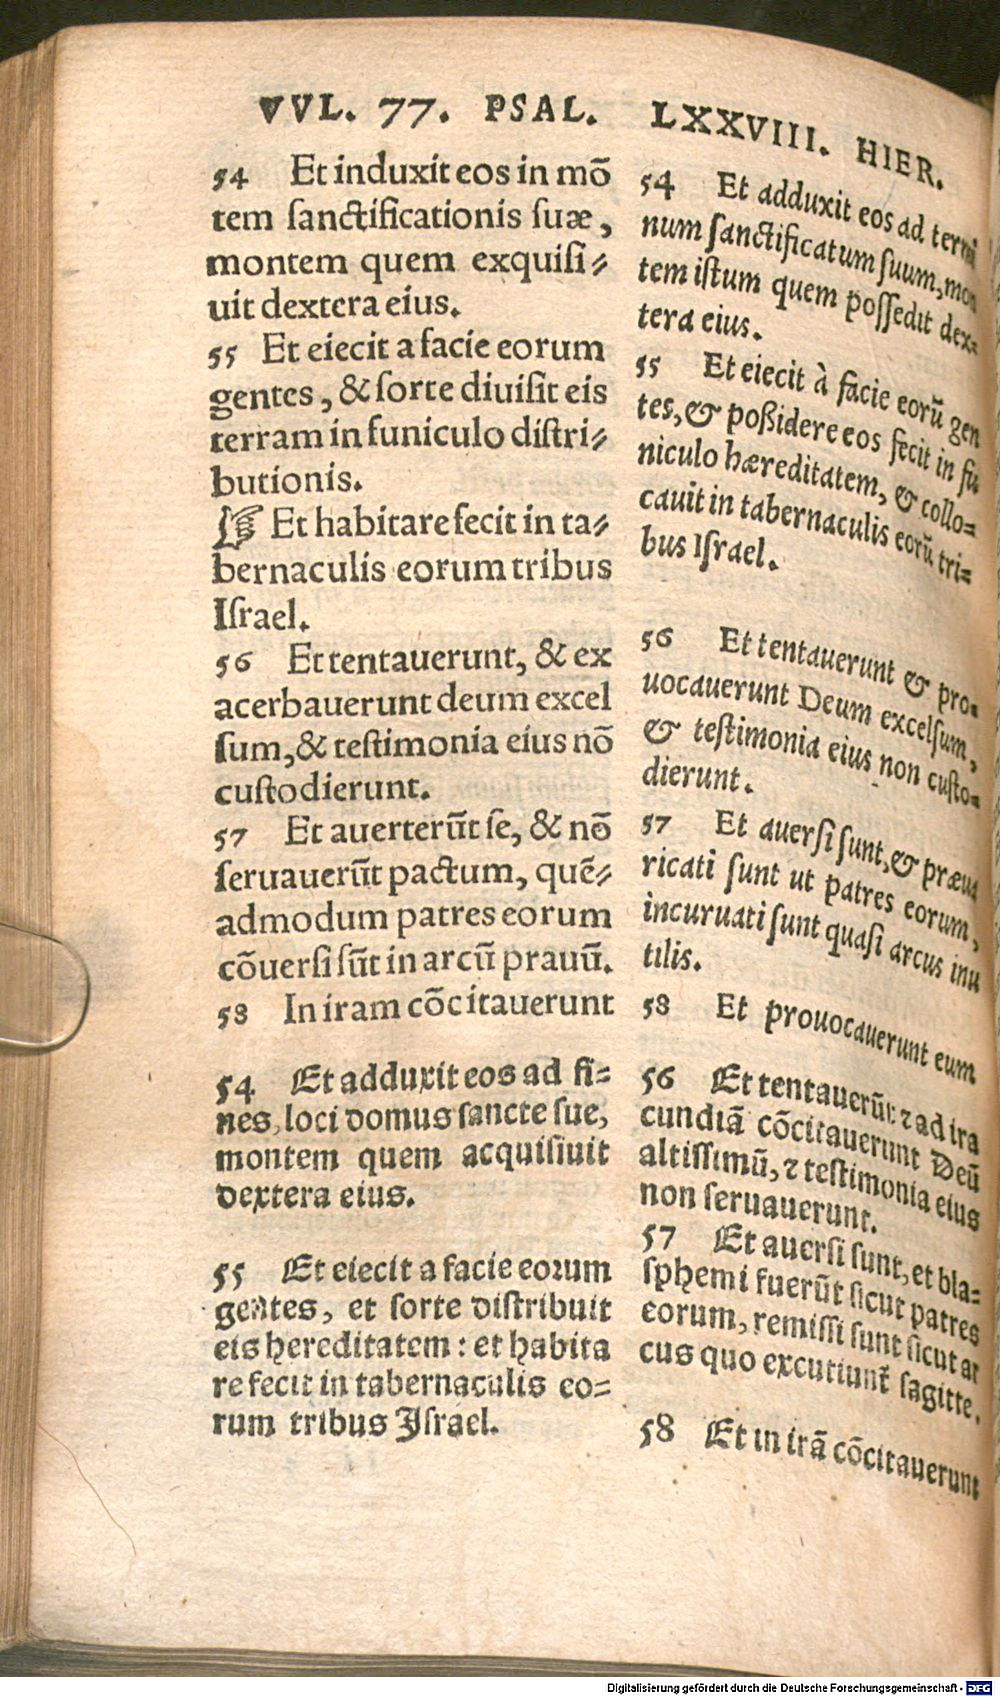 VVL. 77. PSAL. LXXVIII. HIER.
54 Et induxit eos in mō
tem sanctificationis suæ,
montem quem exquisi⸗
uit dextera eius.
55 Et eiecit a facie eorum
gentes, & sorte diuisit eis
terram in funiculo distri⸗
butionis.
☞ Et habitare fecit in ta⸗
bernaculis eorum tribus
Israel.
56 Et tentauerunt, & ex
acerbauerunt deum excel
sum, & testimonia eius nō
custodierunt.
57 Et auerterūt se, & nō
seruauerūt pactum, quē⸗
admodum patres eorum
cōuersi sūt in arcū prauū.
58 In iram cōcitauerunt
54 Et adduxit eos ad termi
num sanctificatum suum, mon
tem istum quem possedit dex⸗
tera eius.
55 Et eiecit à facie eorū gen
tes, & poßidere eos fecit in fu
niculo hæreditatem, & collo⸗
cauit in tabernaculis eorū tri⸗
bus Israel.
56 Et tentauerunt & pro⸗
uocauerunt Deum excelsum,
& testimonia eius non custo⸗
dierunt.
57 Et auersi sunt, & præua
ricati sunt ut patres eorum,
incuruati sunt quasi arcus inu
tilis.
58 Et prouocauerunt eum
54 Et adduxit eos ad fi⸗
nes, loci domus sancte sue,
montem quem acquisiuit
dextera eius.
55 Et eiecit a facie eorum
gentes, et sorte distribuit
eis hereditatem: et habita
re fecit in tabernaculis eo⸗
rum tribus Israel.
56 Et tentauerūt ⁊ ad ira
cundiā cōcitauerunt Deū
altissimū, ⁊ testimonia eius
non seruauerunt.
57 Et auersi sunt, et bla⸗
sphemi fuerūt sicut patres
eorum, remissi sunt sicut ar
cus quo excutiunt̄ sagitte.
58 Et in irā cōcitauerunt
Digitalisierung gefördert durch die Deutsche Forschungsgemeinschaft - DFG